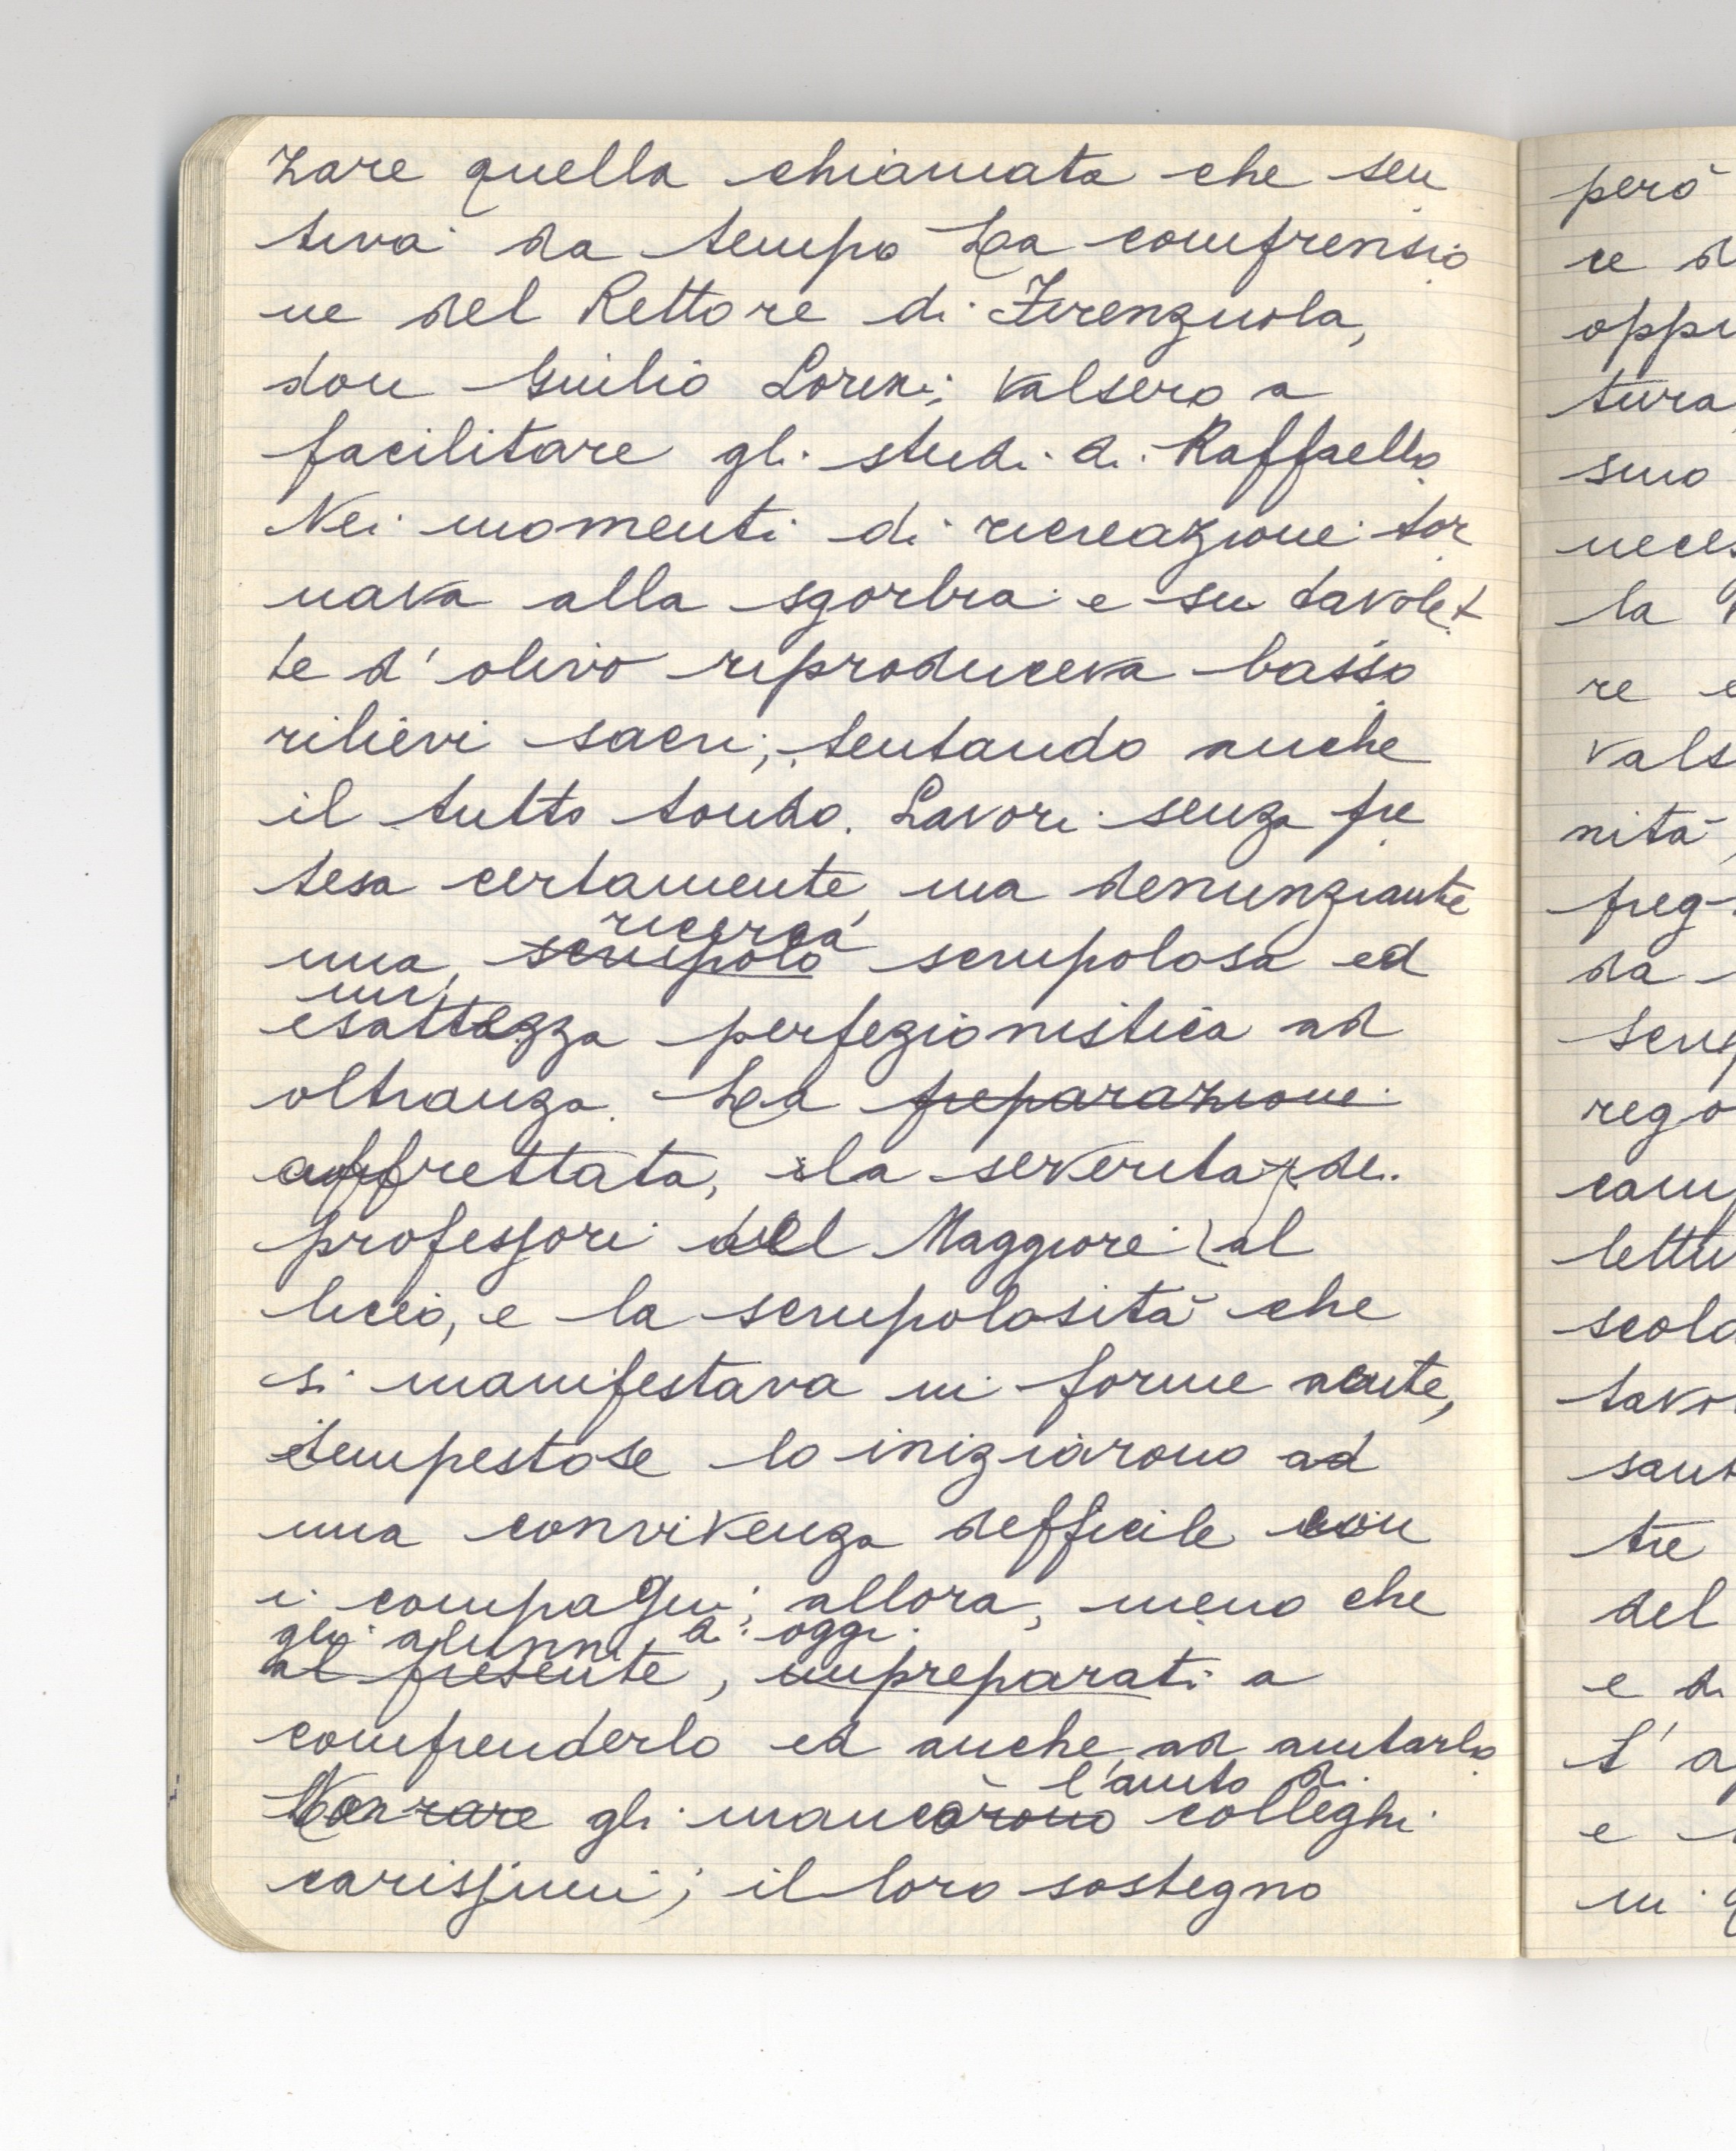 zare quella chiamata che sen
tiva da tempo La comprensio
ne del Rettore di Firenzuola,
don Giulio Loreni; valsero a
facilitare gli studi di Raffaello
Nei momenti di ricreazione tor
nava alla sgorbia e su tavolet
te d'olivo riproduceva basso
rilievi sacri, tentando anche
il tutto tondo. Lavori senza pre
tesa certamente, ma denunziante
ricerca
una, scrupolo scrupolosa ed
un'
esattezza perfezionistica ad
oltranza. La preparazione
affrettata, la severità dei
professori del Maggiore al
liceo, e la scrupolosità che
si manifestava in forme acute,
tempestose lo iniziarono ad
una convivenza difficile con
i compagni; allora, meno che
gli alunni di oggi
al presente, impreparati a
comprenderlo ed anche ad aiutarlo
l'aiuto di
Non rare gli mancarono colleghi
carissimi; il loro sostegno
però
ce d
oppu
tura,
suo
neces
la
re e
vals
nità,
preg
da
scru
rego
cam
lettu
scola
tavo
sant
tre
del
e di
L'a
e
in q